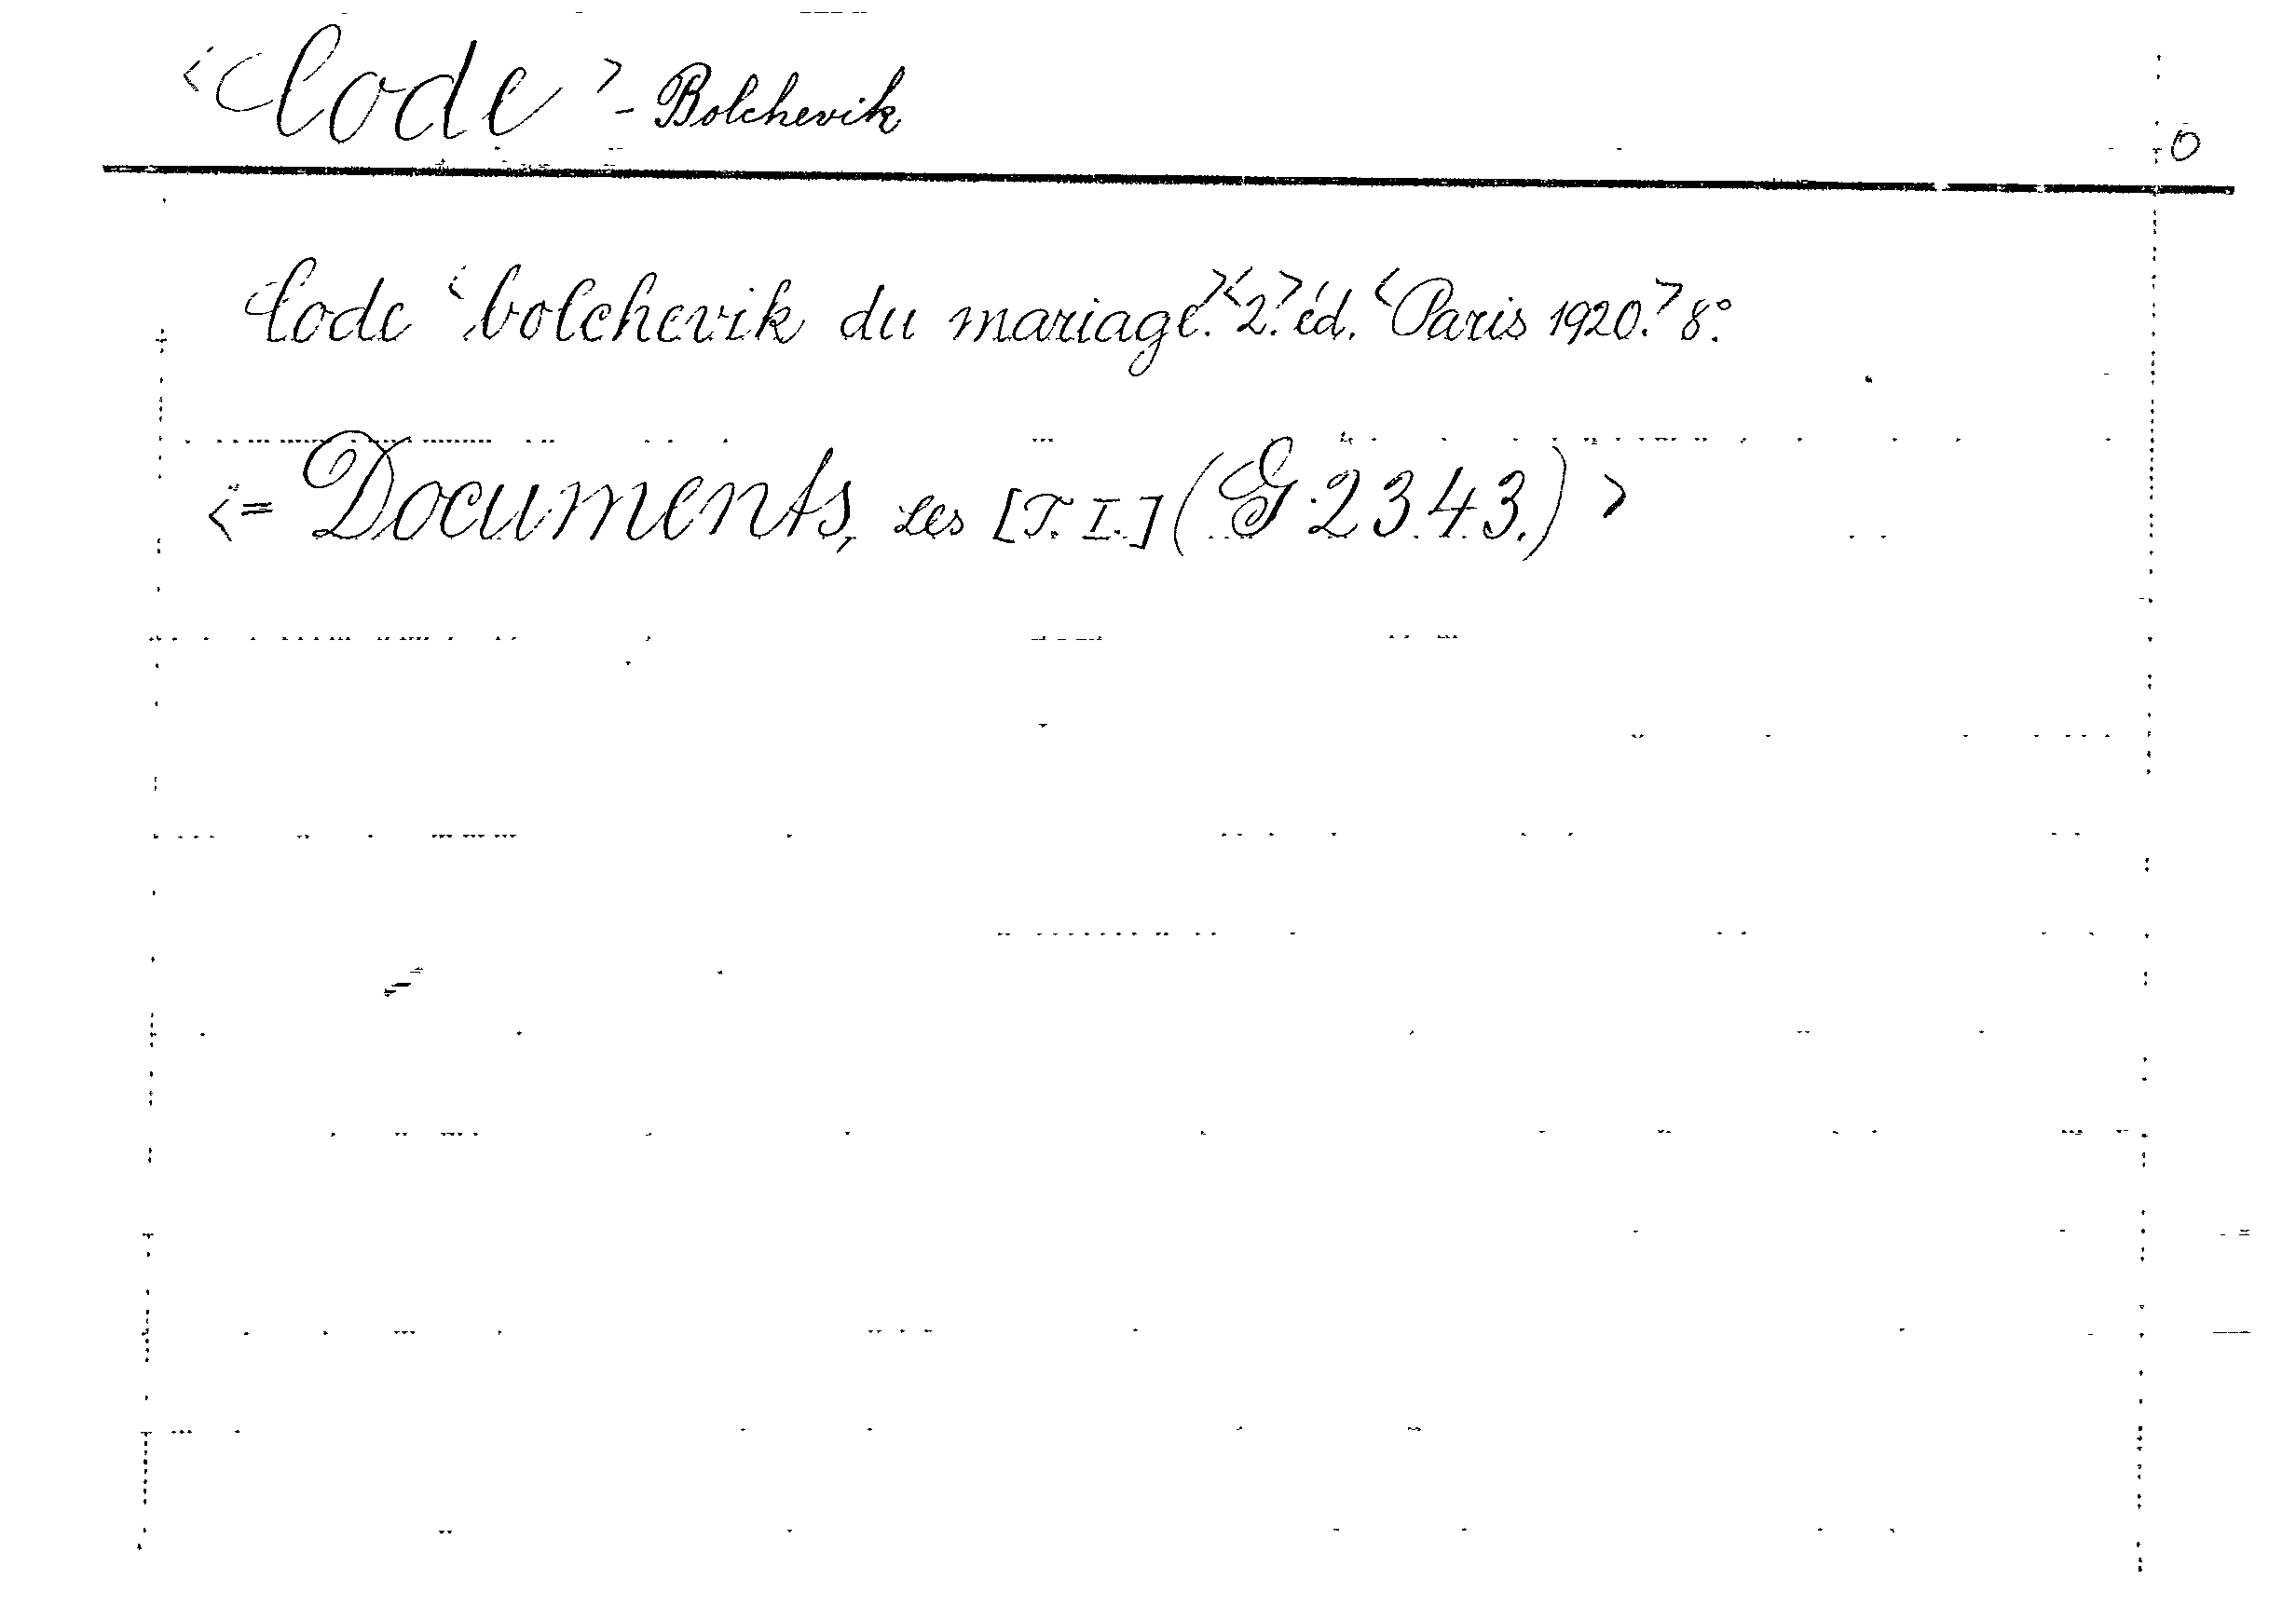 <Code> - Bolchevik
0
Code <bolchevik du mariage.> <2.> éd. <Paris 1920.> 8°.
<= Documents, Les [T. I.] (G 2343.) >